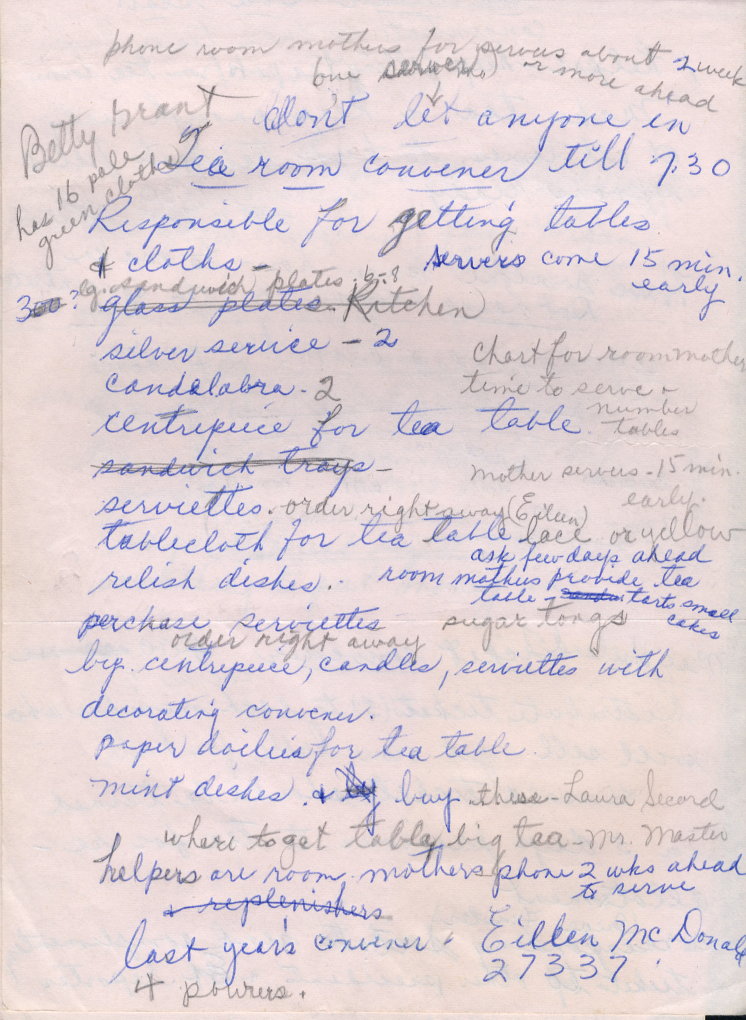 phone room mothers for servers about 2 week
one server or more ahead
Betty Grant
has 16 pale
green cloths
don't let anyone in
Tea room convener till 7.30
Responsible for getting tables
& cloths - servers come 15 min.
early
lg. sandwich plates. 6-8
300? glass plates. Kitchen
silver service - 2
candalabra - 2
chart for room mother
time to serve &
number
tables
centrepiece for tea table.
sandwich trays -
mother servers - 15 min.
early.
serviettes. order right away (Eileen)
tablecloth for tea table lace or yellow
ask few days ahead
relish dishes.. room mothers provide tea
table - tarts small
cakes
perchase serviettes sugar tongs
order right away
big centrepiece, candles, serviettes with
decorating convener.
paper doilies for tea table.
mint dishes. & buy these - Laura Secord
where to get table big tea - Mr. Master
helpers are room mothers phone 2 wks ahead
to serve
& replenishers
last year's convener - Eilleen McDonald
27337.
4 pourers.